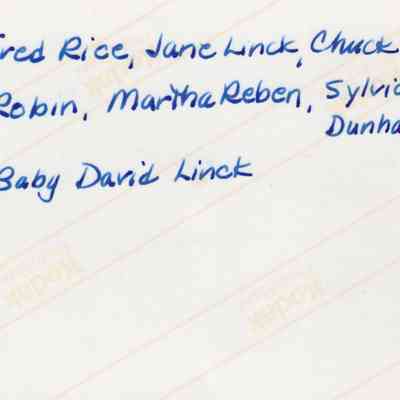 red Rice, Jane Linck, Chuck
Robin, Martha Reben, Sylvia
Dunha
Baby David Linck
Kodak
Kodak